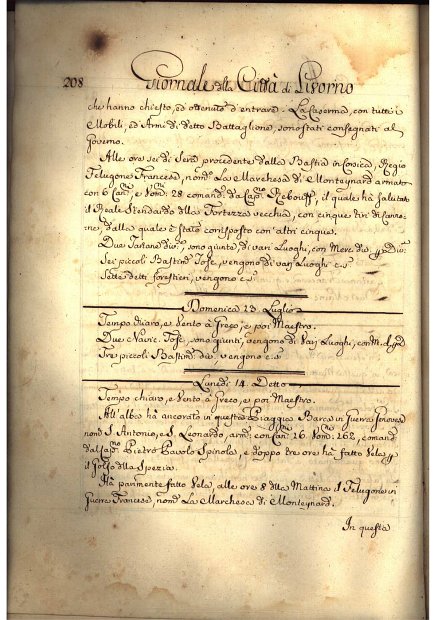 208 Giornale della Città di Livorno
che hanno chiesto, ed ottenuto d'entrare. La Caserma, con tutti i
Mobili, ed Armi di detto Battaglione, sono stati consegnati al
Governo.
Alle ore sei di Sera procedente dalla Bastia in Corsica, Regio
Felugone Francese, nom.o La Marchesa di Montegnard armato
con 6 Can.ni e Vom.ni 28 comand.o da Cap.no Rebouff, il quale hà salutato
il Reale Stendardo della Fortezza vecchia, con cinque tiri di Canno-
ne, dalla quale è stato contrposto con altri cinque.
Due Tartane div.e sono giunte di varj Luoghi, con Merc. div.e p. div.i
Sei piccoli Bastim.ti Tosc. vengono di varj Luoghi c. s.
Sette detti forestieri, vengono c. s.
Domenica 13 Luglio
Tempo chiaro, e Vento à Greco, e poi Maestro.
Due Navic. Tosc. sono giunti, vengono di Varj Luoghi, con M. d. p. d.
Tre piccoli Bastim.ti div. vengono c. s.
Lunedì 14 Detto
Tempo chiaro, e Vento à Greco, e poi Maestro.
All'alba hà ancorato in questa Piaggia Barca in Guerra Genovese
nom.a S. Antonio, e S. Leonardo, arm. con Can.ni 16. Vom.ni 162, comand.
dal Cap.no Pietro Pavolo Spinola, e doppo tre ore hà fatto Vela p.
il Golfo della Spezia.
Hà parimente fatto Vela, alle ore 8 della Mattina il Felugone in
Guerra Francese, nom.o La Marchesa di Montegnard.
In questa